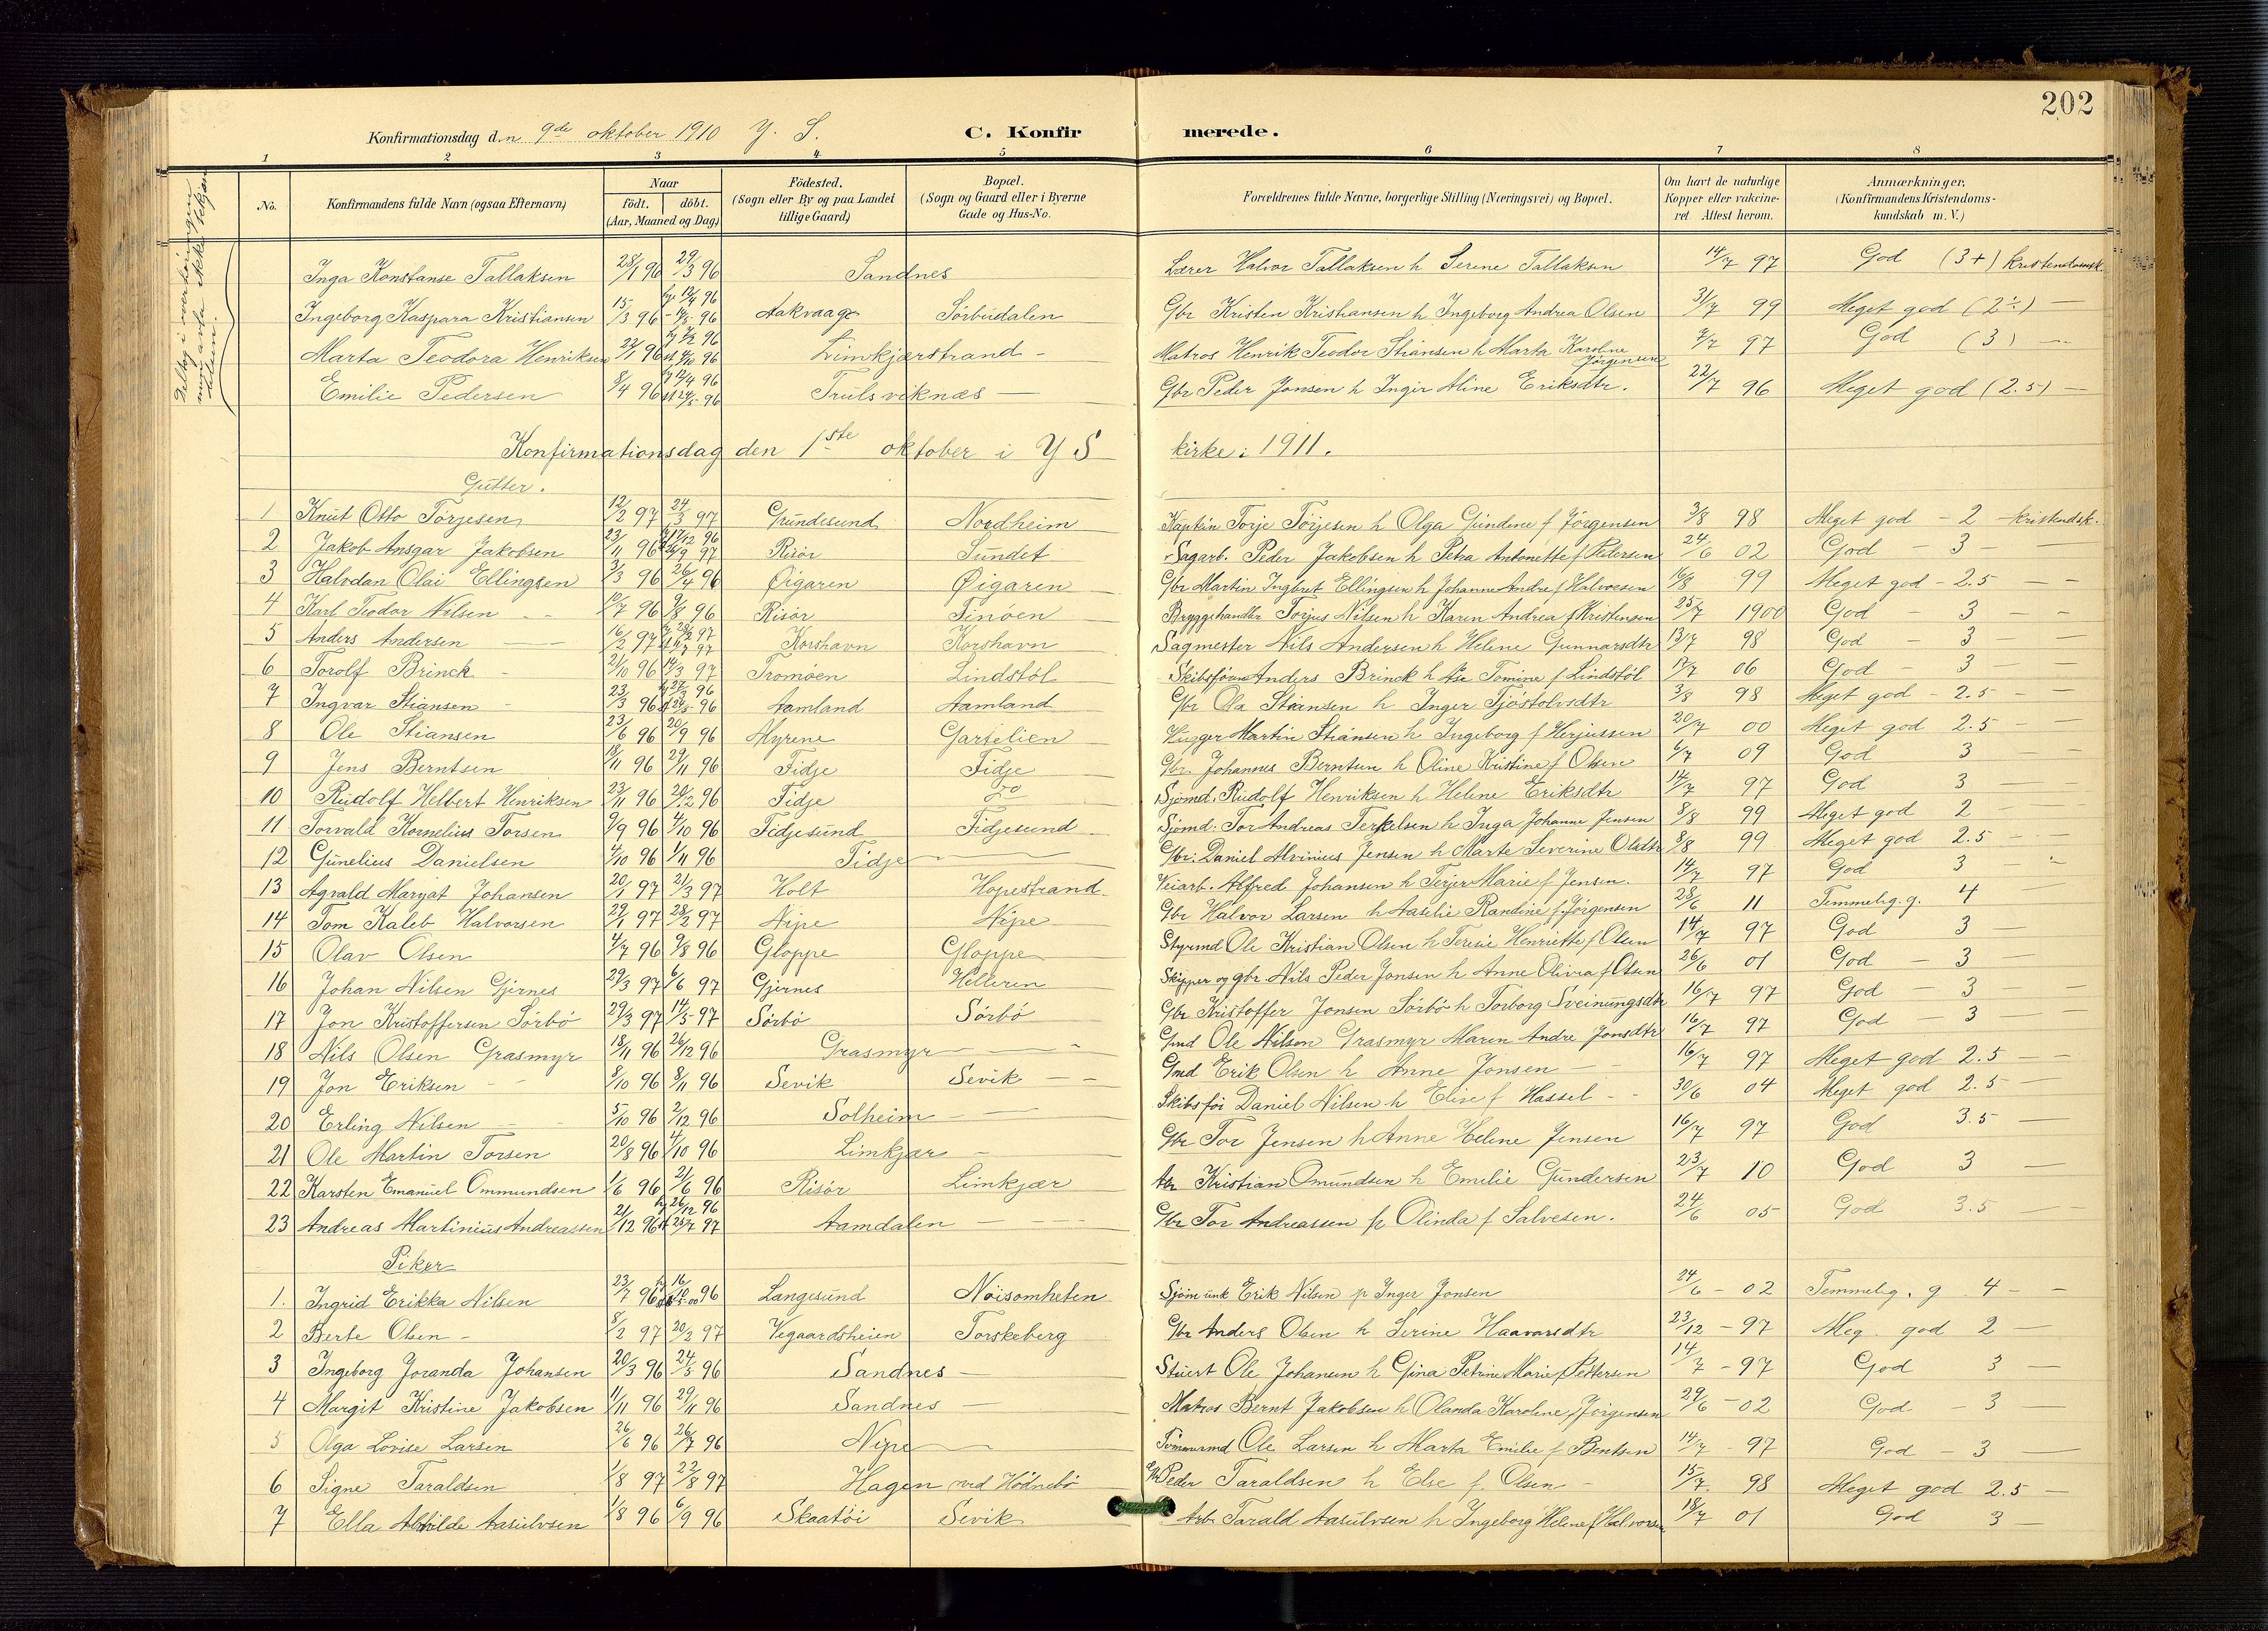 202
Konfirmationsdag den 9de oktober 1910 Y. S. C. Konfirmerede.
1 2 3 4 5 6 7 8
No. Konfirmandens fulde Navn (ogsaa Efternavn) Naar födt. döbt. (Aar, Maaned og Dag) Födested. (Sogn eller By og paa Landet tillige Gaard) Bopæl. (Sogn og Gaard eller i Byerne Gade og Hus-No. Forældrenes fulde Navne, borgerlige Stilling (Næringsvei) og Bopæl. Om havt de naturlige Kopper eller vakcineret. Attest herom. Anmærkninger. (Konfirmandens Kristendomskundskab m. V.)
Inga Konstanse Tallaksen 28/1 96 29/3 96 Sandnes Lærer Halvor Tallaksen h Serine Tallaksen 14/7 97 God (3+) kristendomsk.
Ingeborg Kaspara Kristiansen 15/3 96 Aakvaag Sørbudalen Gbr Kristen Kristiansen h Ingeborg Andrea Olsen 31/7 99 Meget god (2÷) —
Marta Teodora Henriksen Limkjærstrand - Matros Henrik Teodor Stiansen h Marta Karoline Jørgensen 97 God (3) —
Emilie Pedersen 8/4 96 Trulsviknæs — Gbr Peder Jonsen h Ingir Aline Eriksdtr. 22/7 96 Meget god (2.5) —
Konfirmationsdag den 1ste oktober i Y S kirke i 1911.
Gutter.
1 Knut Otto Torjesen 12/2 97 24/3 97 Grundesund Nordheim Kaptein Torje Torjesen h Olga Gundine f Jørgensen 3/8 98 Meget god - 2 - kristendsk.
2 Jakob Ansgar Jakobsen 23/11 96 Risør Sundet Sagarb. Peder Jakobsen h Petra Antonette f Pedersen 24/6 02 God — 3 —
3 Halvdan Olai Ellingsen 3/3 96 26/4 96 Øigaren Øigaren Gbr Martin Ingbret Ellingsen h Johanne Andre f Halvorsen 16/8 99 Meget god - 2.5 — —
4 Karl Teodor Nilsen 10/7 96 9/8 96 Risør Finøen Bryggehandler Torjus Nilsen h Karen Andrea f Kristensen 25/7 1900 God — 3 — —
5 Anders Andersen 16/2 97 Korshavn Korshavn Sagmester Nils Andersen h Helene Gunnarsdtr 13/7 98 God — 3 — —
6 Torolf Brinck 21/10 96 14/3 97 Tromøen Lindstøl Skibsfører Anders Brinck h Åse Tomine f Lindstøl 17/7 06 God — 3 — —
7 Ingvar Stiansen 23/3 96 Aamland Aamland Gbr Ola Stiansen h Inger Tjøstolvsdtr 3/8 98 Meget god - 2.5 — —
8 Ole Stiansen 23/6 96 20/9 96 Myrene Gartelien Hugger Martin Stiansen h Ingeborg f Herjussen 20/7 00 Meget god 2.5 — —
9 Jens Berntsen 18/11 96 29/11 96 Fidje Fidje Gbr. Johannes Berntsen h Oline Kristine f Olsen 6/7 09 God 3 — —
10 Rudolf Helbert Henriksen 23/11 96 20/12 96 Fidje Do Sjømd. Rudolf Henriksen h Helene Eriksdtr 14/7 97 God 3 —
11 Torvald Kornelius Torsen 9/9 96 4/10 96 Fidjesund Fidjesund Sjømd. Tor Andreas Terkelsen h Inga Johanne Jensen 8/8 99 Meget god 2 —
12 Gunelius Danielsen 4/10 96 1/11 96 Fidje Gbr. Daniel Alvinius Jensen h Marte Severine Olsdtr 8/8 99 Meget god 2.5
13 Agvald Maryat Johansen 20/1 97 21/3 97 Holt Hopestrand Veiarb. Alfred Johansen h Terjer Marie f Jensen. 14/7 97 God 3 —
14 Tom Kaleb Halvorsen 29/1 97 28/2 97 Nipe Nipe Gbr Halvor Larsen h Aaselie Randine f. Jørgensen 28/6 11 Temmelig. g. 4
15 Olav Olsen 4/7 96 9/8 96 Gloppe Gloppe Styrmd Ole Kristian Olsen h Terese Henriette f Olsen 14/7 97 God 3 —
16 Johan Nilsen Gjernes 29/3 97 6/6 97 Gjernes Helleren Skipper og gbr. Nils Peder Jonsen h Anne Olivia f Olsen 26/6 01 God — 3 —
17 Jon Kristoffersen Sørbø 29/3 97 14/5 97 Sørbø Sørbø Gbr Kristoffer Jonsen Sørbø h Torborg Sveinungsdtr 16/7 97 God — 3 —
18 Nils Olsen Grasmyr 18/11 96 26/12 96 Grasmyr Gmd Ole Nilson Grasmyr Maren Andre Jonsdtr 16/7 97 God — 3 —
19 Jon Eriksen 8/10 96 8/11 96 Sevik Sevik Gmd Erik Olsen h Anne Jonsen 16/7 97 Meget god 2.5 —
20 Erling Nilsen 5/10 96 2/12 96 Solheim Skibsfør Daniel Nilsen h Elise f Hassel 30/6 04 Meget god 2.5 —
21 Ole Martin Torsen 20/8 96 4/10 96 Limkjær Gbr Tor Jensen h Anne Helene Jensen 16/7 97 God 3.5 —
22 Karsten Emanuel Ommundsen 1/6 96 21/6 96 Risør Limkjær Kristian Omundsen h Emilie Gundersen 23/7 10 God 3 —
23 Andreas Martinius Andreassen 21/12 96 Aamdalen Gbr Tor Andreassen p Olinda f Salvesen. 24/6 05 God 3.5 —
Piker
1. Ingrid Erikka Nilsen 23/7 96 Langesund Nøisomheten Erik Nilsen p Inger Jonsen 24/6 - 02 Temmelig. g 4 -
2 Berte Olsen 8/2 97 20/2 97 Vegaardsheien Torskeberg Gbr Anders Olsen h Serine Haavarsdtr 23/12 - 97 Meg. god 2 —
3 Ingeborg Joranda Johansen 20/3 96 24/5 96 Sandnes Stuert Ole Johansen h Gina Petrine Marie f Pettersen 14/7 - 97 God 3 —
4 Margit Kristine Jakobsen 11/11 96 29/11 96 Sandnes Matros Bernt Jakobsen h Olanda Karoline f Jørgensen 29/6 - 02 God - 3
5 Olga Lovise Larsen 26/6 96 26/7 96 Nipe Tømmermd Ole Larsen h Marta Emilie f Bentsen 14/7 - 97 God — 3 —
6 Signe Taraldsen 1/8 97 22/8 97 Hagen ved Hødnebø Gbr Peder Taraldsen h Else f. Olsen 15/7. 98 Meget god 2.5 —
7 Ella Alvilde Aasulvsen 1/8 96 6/9 96 Skaatøi Sevik Arb. Tarald Aasulvsen h Ingeborg Helene f Halvorsen 18/7 01 God 3 —